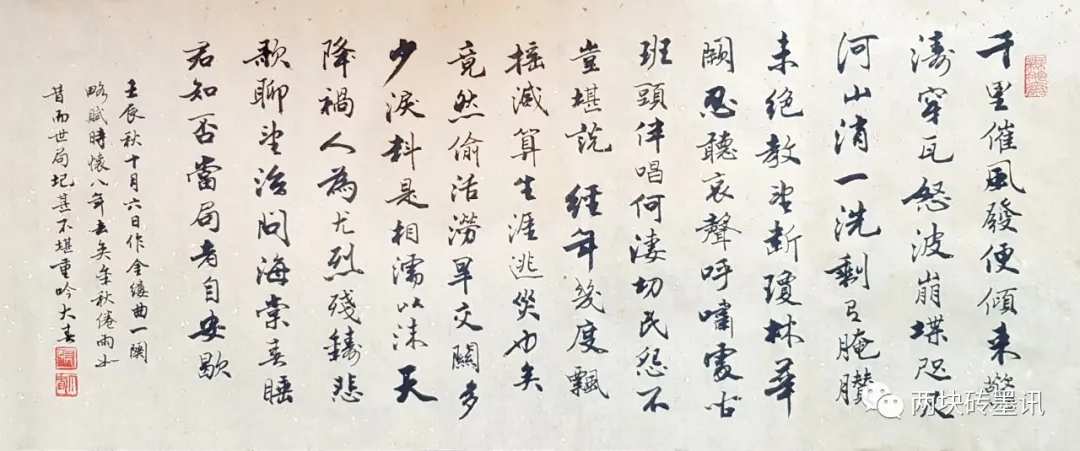 千里催風發便傾來驚
濤穿瓦怒波崩堞咫尺
河山消一洗剩有腌臢
未絕教望斷瓊林華
闕忍聽哀聲呼嘯處
班頭伴唱何淒切民怨不
豈堪說 經年幾度飄
搖減算生涯逃災也矣
竟然偷活澇旱交關多
少淚料是相濡以沫天
降禍人為尤烈殘鑄悲
歌聊望治問海棠春睡
君知否當局者自安歇
壬辰秋十月六日作金縷曲一闋
略賦時懷八年去矣秋倦雨如
昔而世局圮甚不堪重吟大春
两块砖墨讯